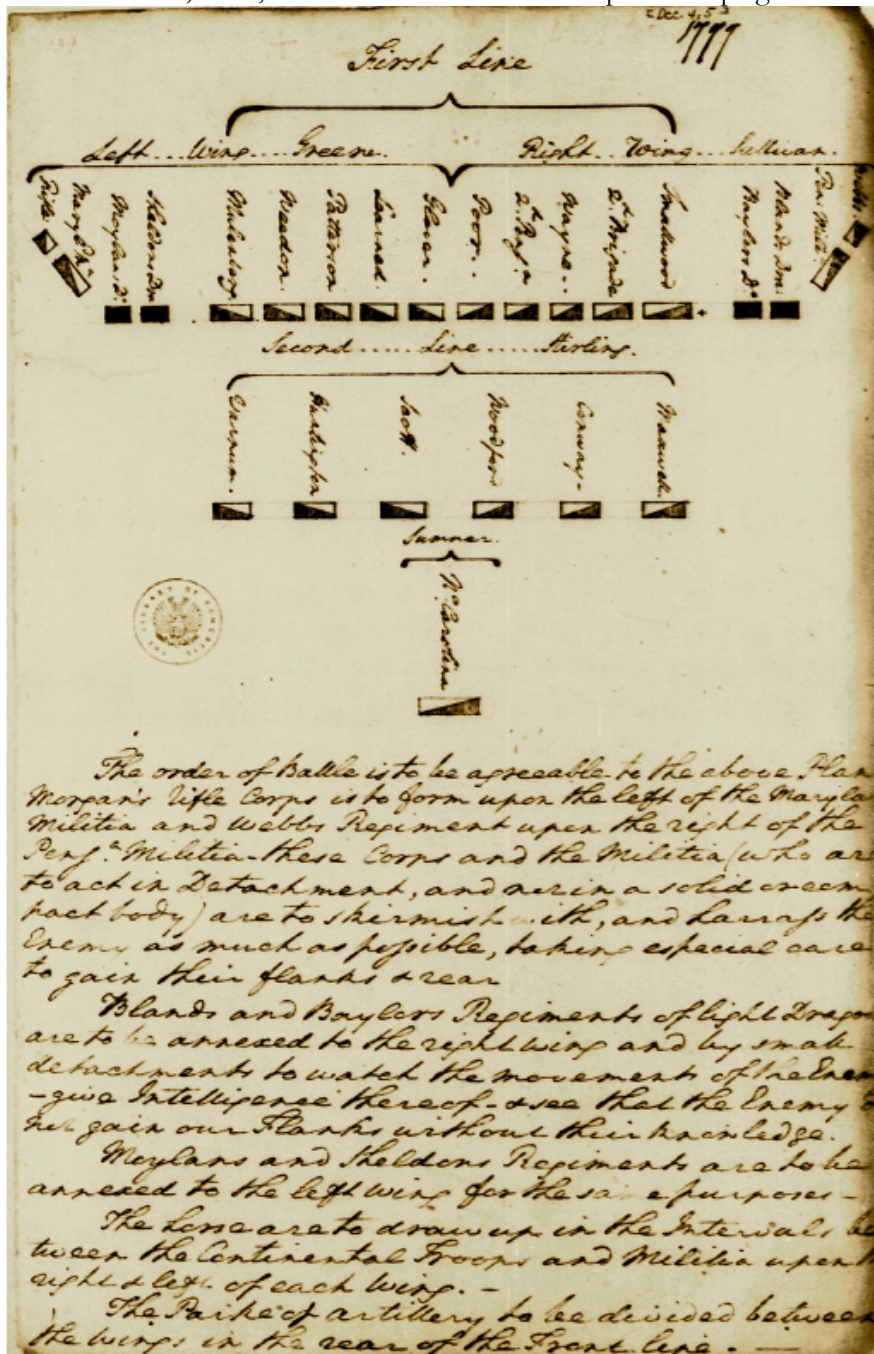 [Dec. 4, 5
1777
First Line
Left... Wing.... Greene.
Right.. Wing.... Sullivan.
Rifle
Maryld Ma
Moylans Do
Sheldons Dns
Mulenberg
Weedon.
Patterson
Learned.
Glover.
Poor..
2d. Pensa
Wayne...
2d. Brigade
Smallwood
Baylors Do
Blands Dns.
Pen. Milita
Webbs
Second..... Line..... Stirling.
Varnum.
Huntington
Scott.
Woodford
Conway-
Maxwell
Sumner.
No. Carolina
THE LIBRARY OF CONGRESS
The order of Battle is to be agreeable to the above Plan
Morgan's rifle Corps is to form upon the left of the Maryla
Militia and Webbs Regiment upon the right of the
Pensa. Militia-these Corps and the Militia (who are
to act in Detachment, and not in a solid or com
pact body) are to skirmish with, and harrass the
Enemy as much as possible, taking especial care
to gain their flanks & rear
Blands and Baylors Regiments of light Drago
are to be annexed to the right wing and by small
detachments to watch the movements of the Enem
-give Intelligence thereof-& see that the Enemy do
not gain our Flanks without their knowledge.
Moylans and Sheldons Regiments are to be
annexed to the left wing for the same purposes-
The horse are to draw up in the Intervals be
tween the Continental Troops and Militia upon
right & left of each Wing.-
The Parke of artillery to be divided between
the wings in the rear of the Front line.-